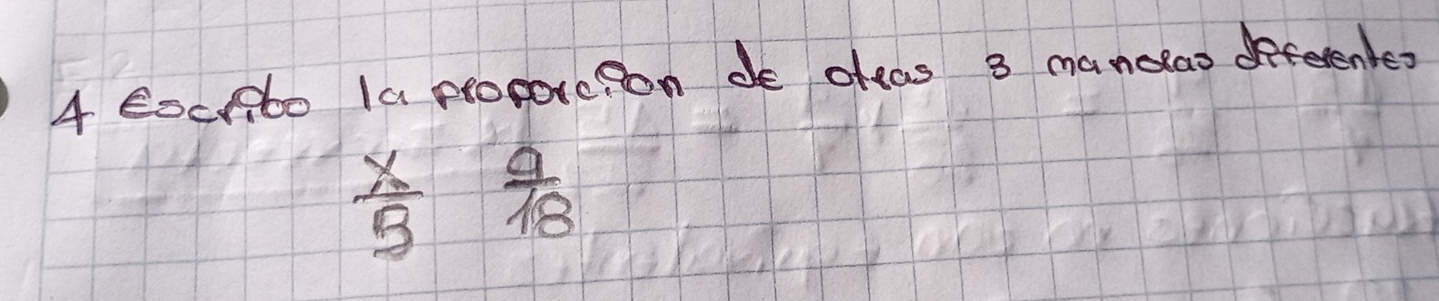 4 Escribo la proporcion de otras 3 maneras diferentes
x/5 9/18